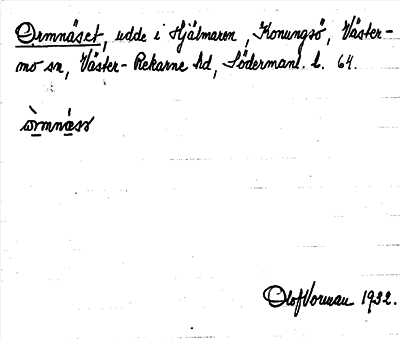 Ormnäset, udde i Hjälmaren, Konungsö, Väster-
mo sn, Väster-Rekarne hd, Södermanl. l. 64.
òrmnæsə
Olof Vorman 1932.